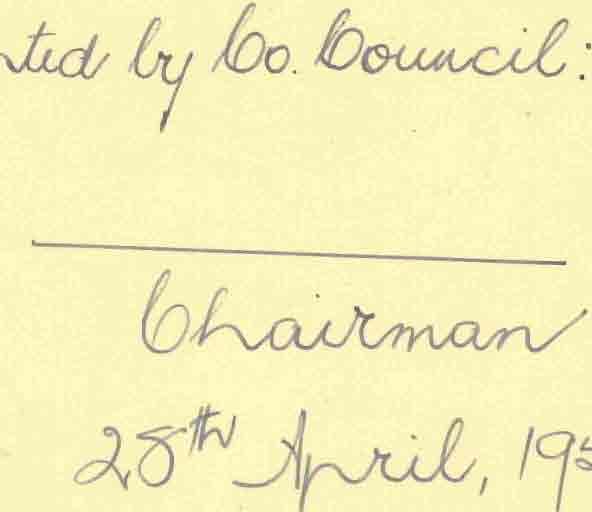 ted by Co. Council:
Chairman
28th April, 195